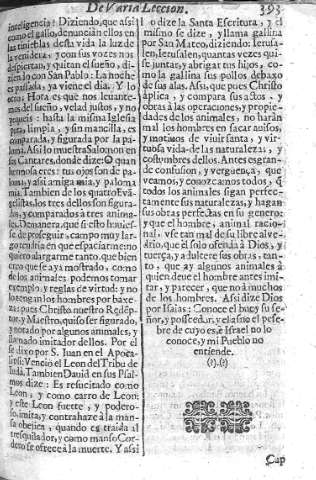 De Varia Leccion.
393
inteligencia! Diziendo, que assi
como el gallo, denuncian ellos en
las tinieblas desta vida la luz de
la venidera, y con sus vozes nos
despiertan, y quitan el sueño, di-
ziendo con San Pablo: La noche
es passada, ya viene el dia. Y lo
otro: Hora es que nos leuante-
mos del sueño, velad justos, y no
pequeis: hasta la misma Iglesia
pura, limpia, y sin mancilla, es
comparada, y figurada por la pa-
loma. Assi lo muestra Salomon en
las Cantares, donde dize: O quan
hermosa eres: tus ojos son de pa-
loma, y assi amiga mia, y paloma
mia. Tambien de los quatro Eva-
gelistas, los tres dellos son figura-
dos, y comparados à tres anima-
les. De manera, que si esto huuies-
se de proseguir, campo muy lar-
go tendria en que espaciarme no
quiero alargarme tanto, que bien
creo que se aya mostrado, como
de los animales podemos tomar
exemplo, y reglas de virtud: y no
lo tengan los hombres por baxe-
za: pues Christo nuestro Redēp-
tor, y Maestro, quiso ser figurado,
y notado por algunos animales, y
llamado imitador dellos. Por el
se dixo por S. Juan en el Apoca-
lipsi: Venciò el Leon del Tribu de
Iudà. Tambien David en sus Psal-
mos dize: Es resucitado como
Leon, y como carro de Leon:
y este Leon fuerte, y podero-
so, imita, y contrahaze à la man-
sa obeja, quando es traida al
tresquilador, y como manso Cor-
dero se ofrece à la muerte. Y assi
lo dize la Santa Escritura, y el
mismo se dize, y llama gallina
por San Mateo, diziendo: Ierusa-
len, Ierusalen, quantas vezes qui-
se juntar, y abrigar tus hijos, como
la gallina sus pollos debaxo
de sus alas. Assi, que pues Christo
aplica, y compara sus actos, y
obras à las operaciones, y propie-
dades de los animales, no haràn
mal los hombres en sacar auisos,
y motiuos de viuir santa, y vir-
tuosa vida de las naturalezas, y
costumbres dellos. Antes es gran-
de confusion, y verguença, que
veamos, y conozcamos todos, q
todos los animales sigan perfec-
tamente sus naturalezas, y hagan
sus obras perfectas en su genero:
y que el hombre, animal racio-
nal, vse tan mal de su libre alve-
drio, que èl solo ofenda à Dios, y
tuerça, y adultere sus obras, tan-
to, que ay algunos animales à
quien deue el hombre antes imi-
tar, y parecer, que no à muchos
de los hombres. Assi dize Dios
por Isaias: Conoce el buey su se-
ñor, y posseedor, y el asno el pese-
bre de cuyo es, è Israel no lo
conoce, y mi Pueblo no
entiende.
(?).(?)
Cap